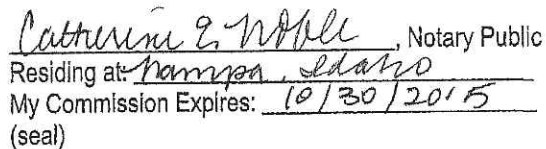 Catherine E. Noble, Notary Public
Residing at: Nampa, Idaho
My Commission Expires: 10/30/2015
(seal)